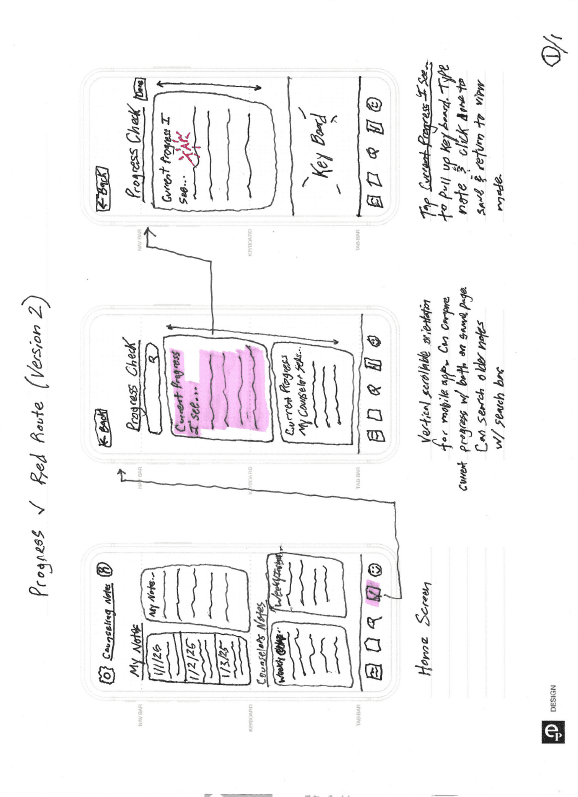 Progress ✓ Red Route (Version 2)
1/1
NAV BAR
Counseling Notes
My Notes
1/1/25
1/2/25
1/3/25
My Notes...
Counselors Notes
KEYBOARD
TAB BAR
Home Screen
NAV BAR
← Back
Progress Check
Current Progress
I see...
Current Progress
My Counselor sees...
KEYBOARD
TAB BAR
Vertical scrollable orientation
for mobile app. Can compare
current progress w/ both on same page.
Can search older notes
w/ search bar
NAV BAR
← Back
Progress Check
Done
Current Progress I
see...
TAP
Key Board
KEYBOARD
TAB BAR
Tap Current Progress I see...
to pull up key board. Type
note & click done to
save & return to view
mode.
DESIGN